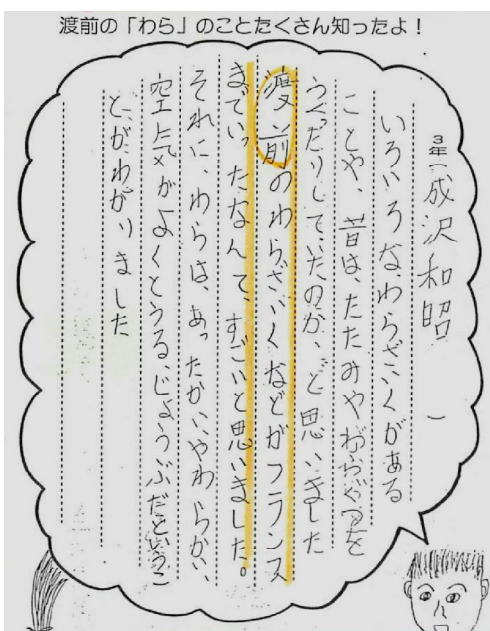 渡前の「わら」のことたくさん知ったよ！
3年（成沢和昭）
いろいろなわらざいくがある
ことや、昔は、たたみやわらぐつを
つくったりしていたのか、と思いました
渡前のわらざいくなどがフランス
までいったなんて、すごいと思いました。
それに、わらは、あったかい、やわらかい、
空気がよくとうる、じょうぶだというこ
とがわかりました